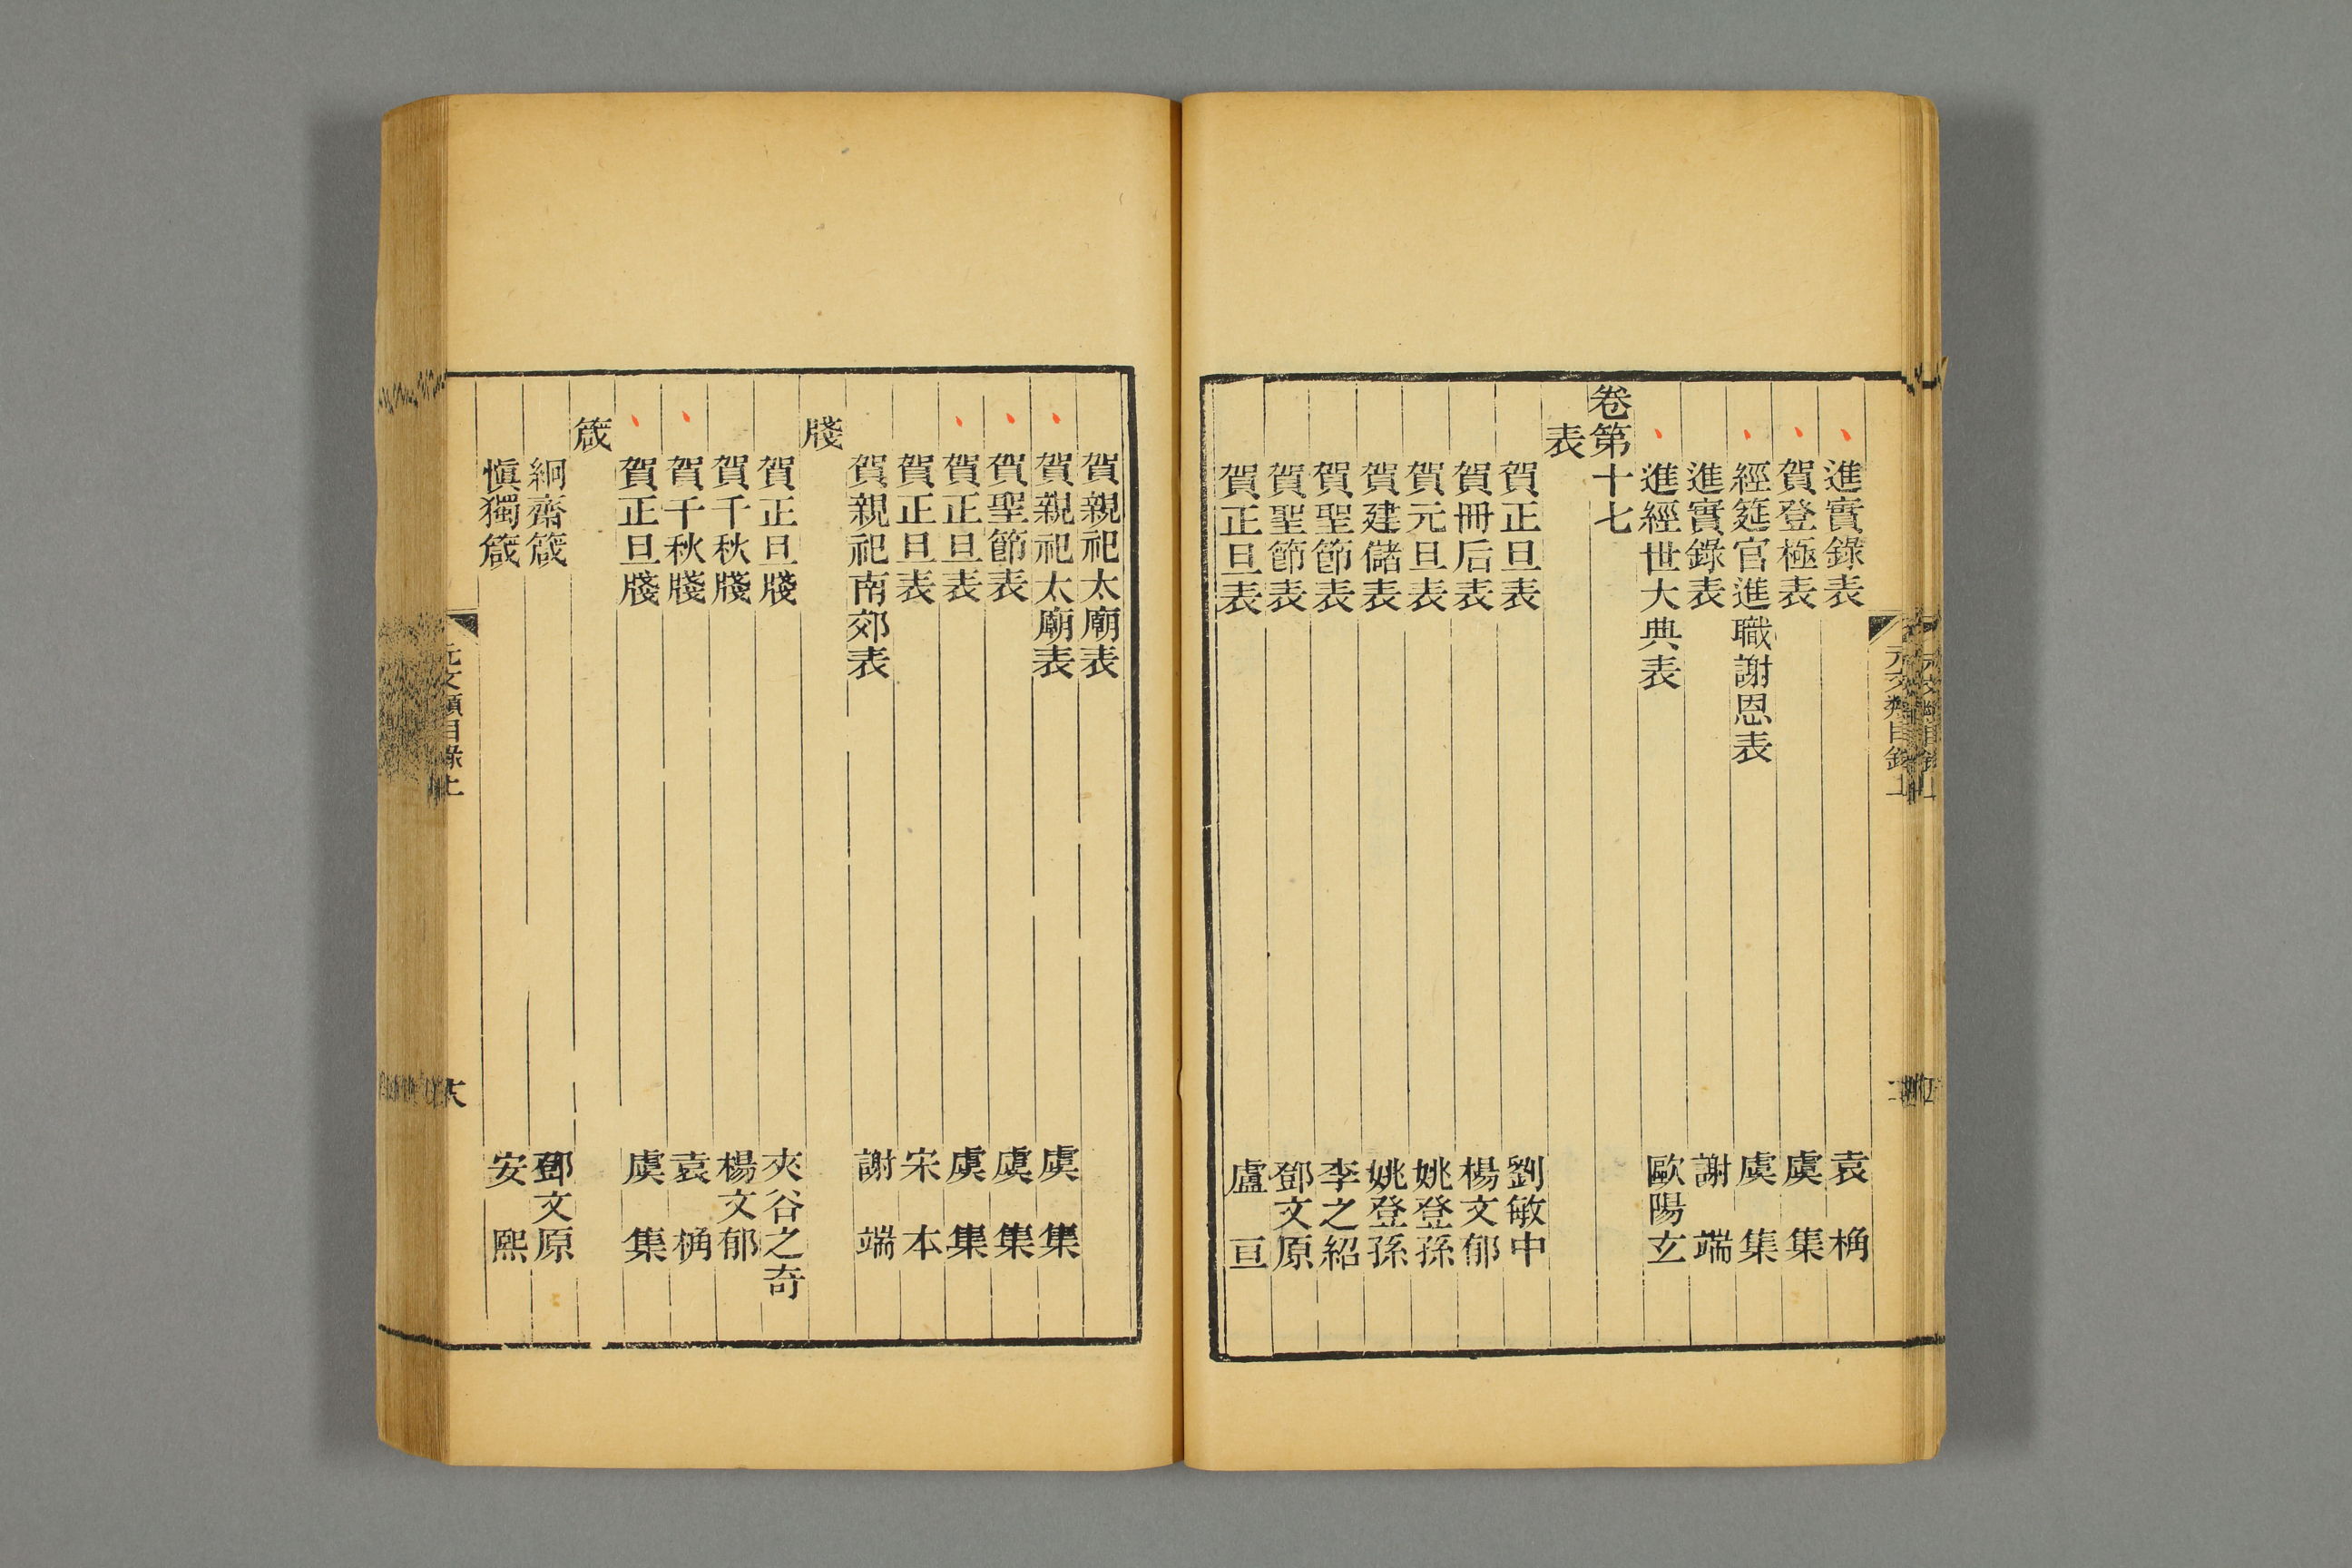 進實錄表 袁桷
賀登極表 虞集
經筵官進職謝恩表 虞集
進實錄表 謝端
進經世大典表 歐陽玄
卷第十七
表
賀正旦表 劉敏中
賀冊后表 楊文郁
賀元旦表 姚登孫
賀建儲表 姚登孫
賀聖節表 李之紹
賀聖節表 鄧文原
賀正旦表 盧亘
賀親祀太廟表
賀親祀太廟表 虞集
賀聖節表 虞集
賀正旦表 虞集
賀正旦表 宋本
賀親祀南郊表 謝端
牋
賀正旦牋 夾谷之奇
賀千秋牋 楊文郁
賀千秋牋 袁桷
賀正旦牋 虞集
箴
絅齋箴 鄧文原
愼獨箴 安熙
元文類目錄上